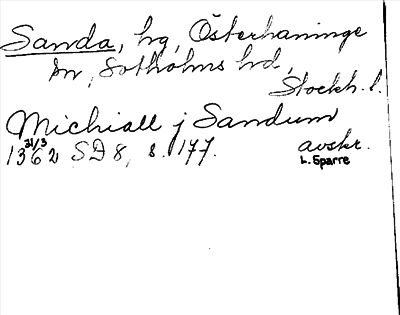 Sanda, hg, Österhaninge
sn, Sotholms hd,
Stockh. l.
Michiall j Sandum
31/3
1362 SD 8, s. 177. avskr.
L. Sparre